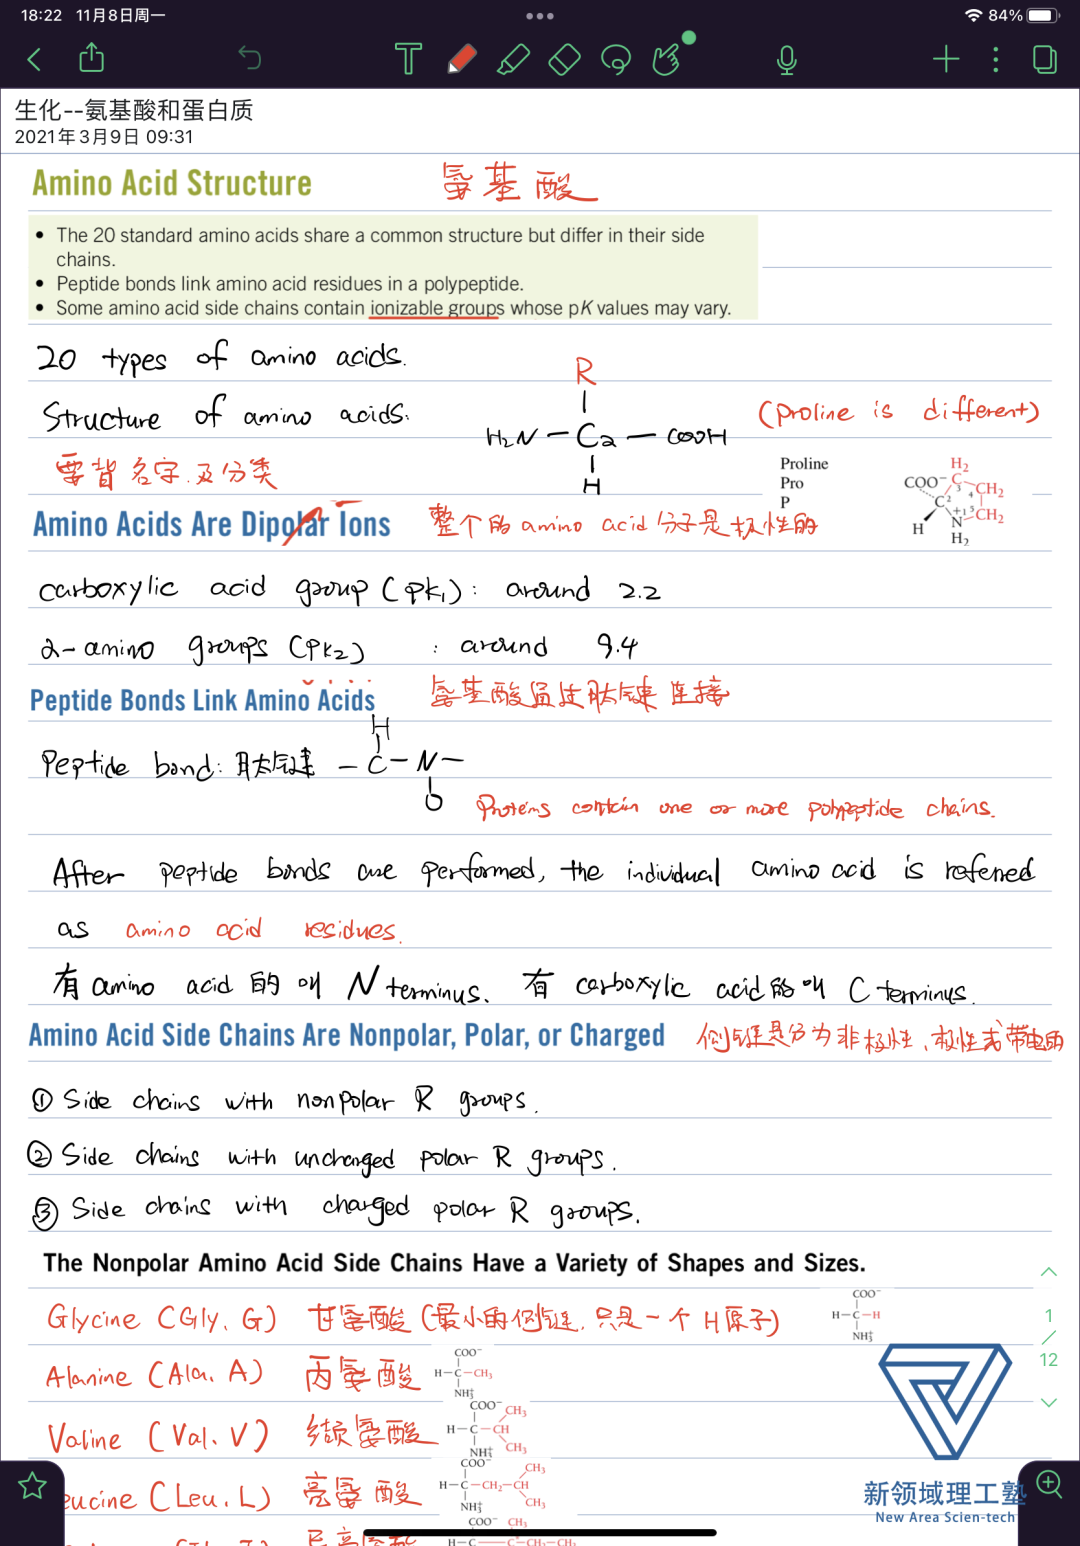 18:22 11月8日周一
84%
生化--氨基酸和蛋白质
2021年3月9日 09:31
Amino Acid Structure 氨基酸
• The 20 standard amino acids share a common structure but differ in their side
chains.
• Peptide bonds link amino acid residues in a polypeptide.
• Some amino acid side chains contain ionizable groups whose pK values may vary.
20 types of amino acids.
R
Structure of amino acids: (Proline is different)
H₂N — Cα — COOH
H
要背名字及分类
Proline
Pro
P
H₂
COO⁻ C CH₂
3 4
C 2
+1 5 CH₂
H N
H₂
Amino Acids Are Dipolar Ions 整个的 amino acid 分子是极性的
carboxylic acid group (pk₁): around 2.2
2-amino groups (pk₂) : around 9.4
Peptide Bonds Link Amino Acids 氨基酸通过肽键连接
H
Peptide bond: 肽键 — C — N —
O
Proteins contain one or more polypeptide chains.
After peptide bonds are performed, the individual amino acid is referred
as amino acid residues.
有 amino acid 的叫 N terminus. 有 carboxylic acid 的叫 C terminus.
Amino Acid Side Chains Are Nonpolar, Polar, or Charged 侧链是分为非极性、极性或带电的
① Side chains with nonpolar R groups.
② Side chains with uncharged polar R groups.
③ Side chains with charged polar R groups.
The Nonpolar Amino Acid Side Chains Have a Variety of Shapes and Sizes.
Glycine (Gly, G) 甘氨酸 (最小的侧链, 只是一个H原子)
COO⁻
H—C—H
NH₃⁺
1
/
12
Alanine (Ala, A) 丙氨酸
COO⁻
H—C—CH₃
NH₃⁺
Valine (Val, V) 缬氨酸
COO⁻ CH₃
H—C—CH
NH₃⁺ CH₃
eucine (Leu, L) 亮氨酸
COO⁻ CH₃
H—C—CH₂—CH
NH₃⁺ CH₃
COO⁻ CH₃
H—C—C—CH₂—CH₃
新领域理工塾
New Area Scien-tech